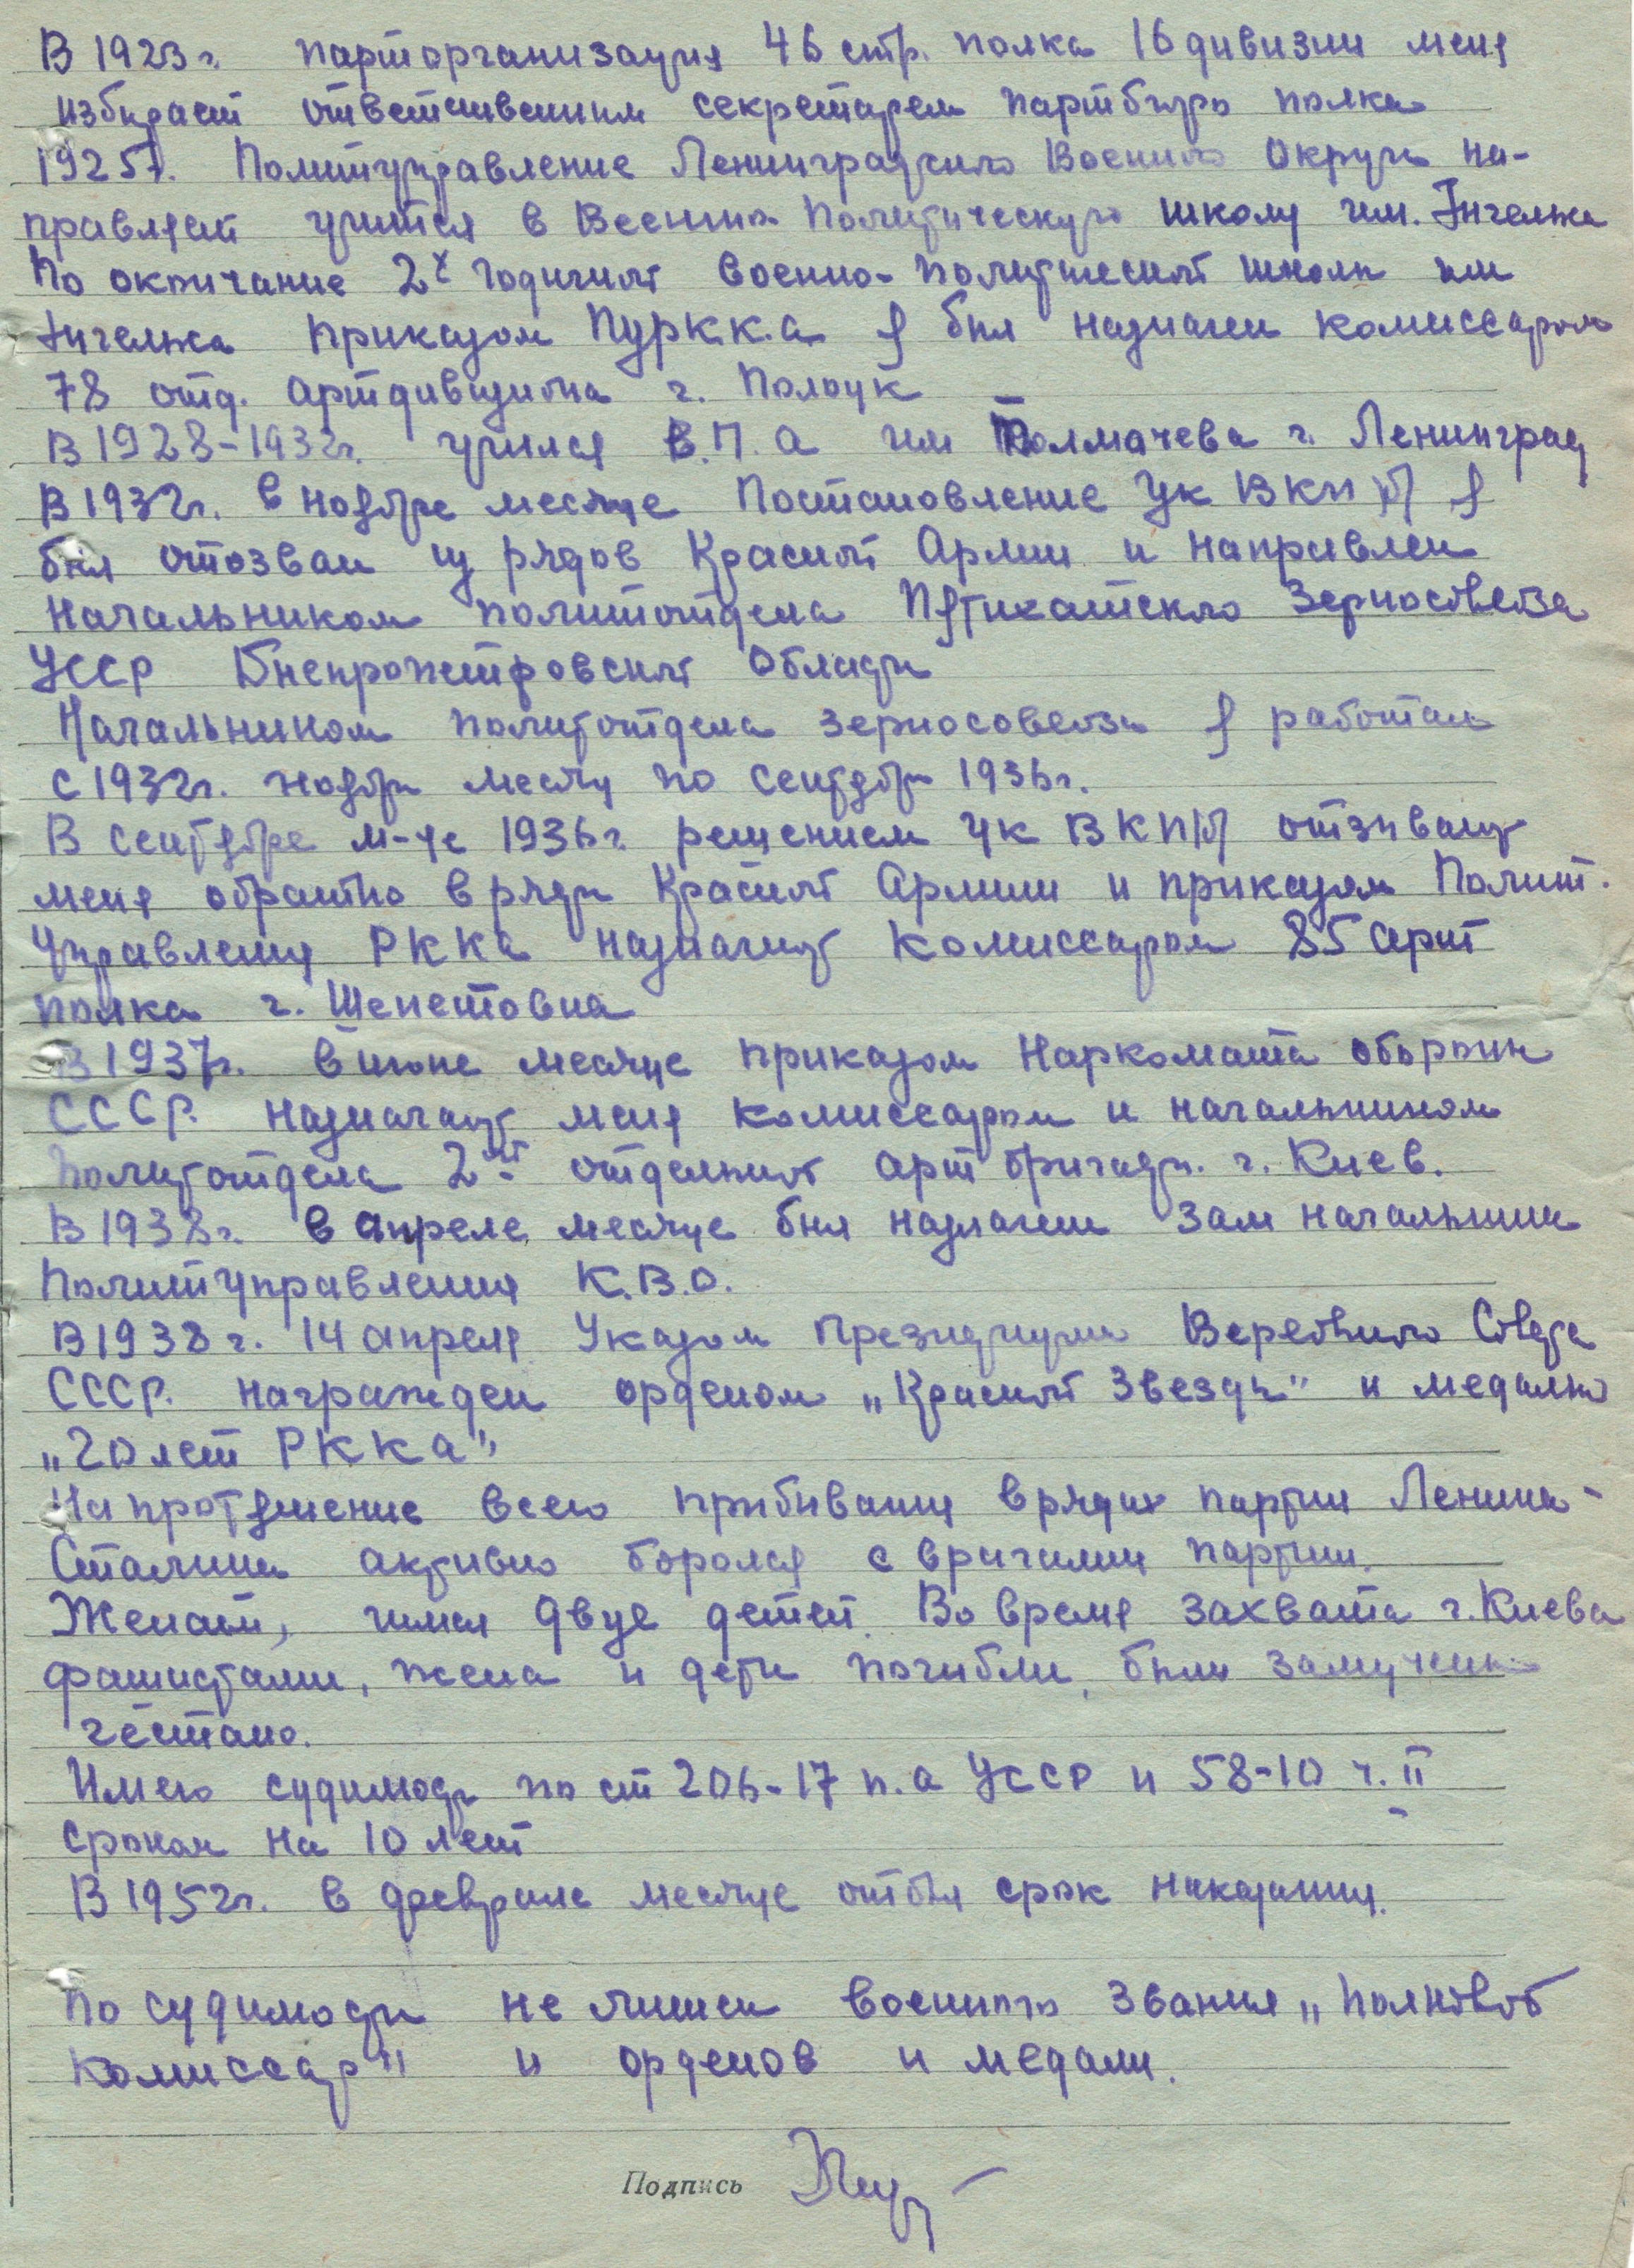 В 1923 г. парторганизация 46 стр. полка 16 дивизии меня
избирает ответственным секретарем партбюро полка
1925 г. Политуправление Ленинградского Военного Округа на-
правляет учится в Военно Политическую школу им. Энгельса
По окончание 2х годичной военно-политической школы им
Энгельса приказом ПУРКК.А. я был назначен комиссаром
78 отд. артдивизиона г. Полоцк
В 1928-1932 г. учился В.П.А им Толмачева г. Ленинград
В 1932 г. в ноябре месяце Постановление ЦК ВКП(б) я
был отозван из рядов Красной Армии и направлен
Начальником политотдела Пятихатского Зерносовхоза
УССР Днепропетровской области
Начальником политотдела зерносовхоза я работал
с 1932 г. ноября месяц по сентябрь 1936 г.
В сентябре м-це 1936 г. решением ЦК ВКП(б) отзывают
меня обратно в ряды Красной Армии и приказом Полит.
Управления РККА назначают комиссаром 85 арт
полка г. Шепетовка
В 1937 г. в июне месяце приказом Наркомата обороны
СССР. назначают меня комиссаром и начальником
политотдела 2ой отдельной арт бригады. г. Киев.
В 1938 г. в апреле месяце был назначен зам начальника
Политуправления К.В.О.
В 1938 г. 14 апреля Указом Президиума Верховного Совета
СССР. награжден орденом „Красной Звезды" и медалью
„20 лет РККА"
На протяжение всего прибывания в рядах партии Ленина-
Сталина активно боролся с врагами партии.
Женат, имел двуе детей. Во время захвата г. Киева
фашистами, жена и дети погибли, были замучены
гестапо.
Имею судимость по ст 206-17 п. а УССР и 58-10 ч. II
сроком на 10 лет
В 1952 г. в феврале месяце отбыл срок наказания.
По судимости не лишен военного звания „Полковой
комиссар" и орденов и медали.
Подпись